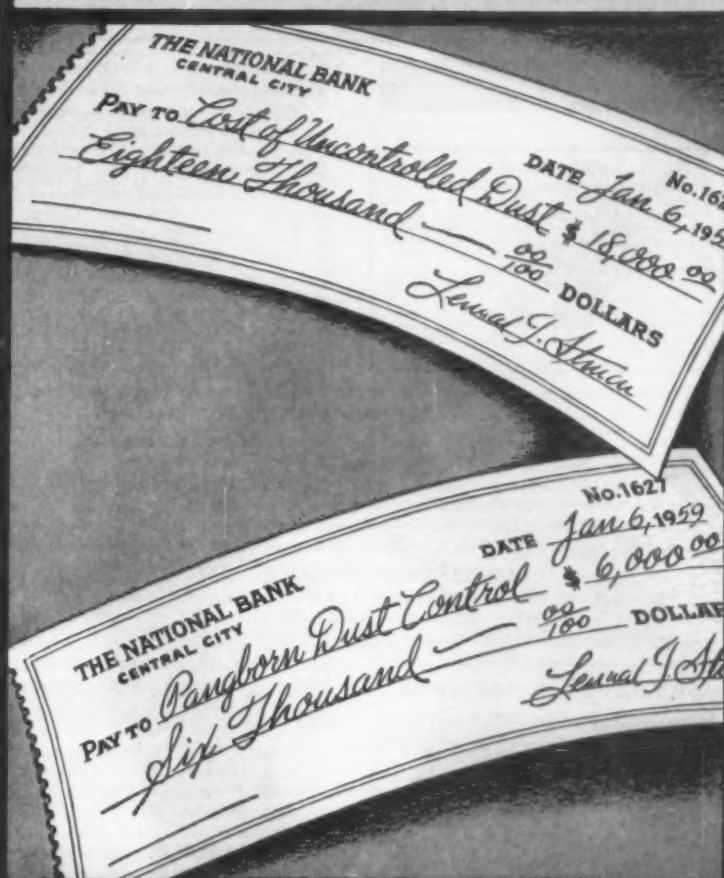 THE NATIONAL BANK
CENTRAL CITY
No.162
DATE Jan. 6, 195
PAY TO Cost of Uncontrolled Dust $ 18,000 00
Eighteen Thousand — 00/100 DOLLARS
No.1627
DATE Jan 6, 1959
THE NATIONAL BANK
CENTRAL CITY
PAY TO Pangborn Dust Control $ 6,000 00
Six Thousand — 00/100 DOLLAR